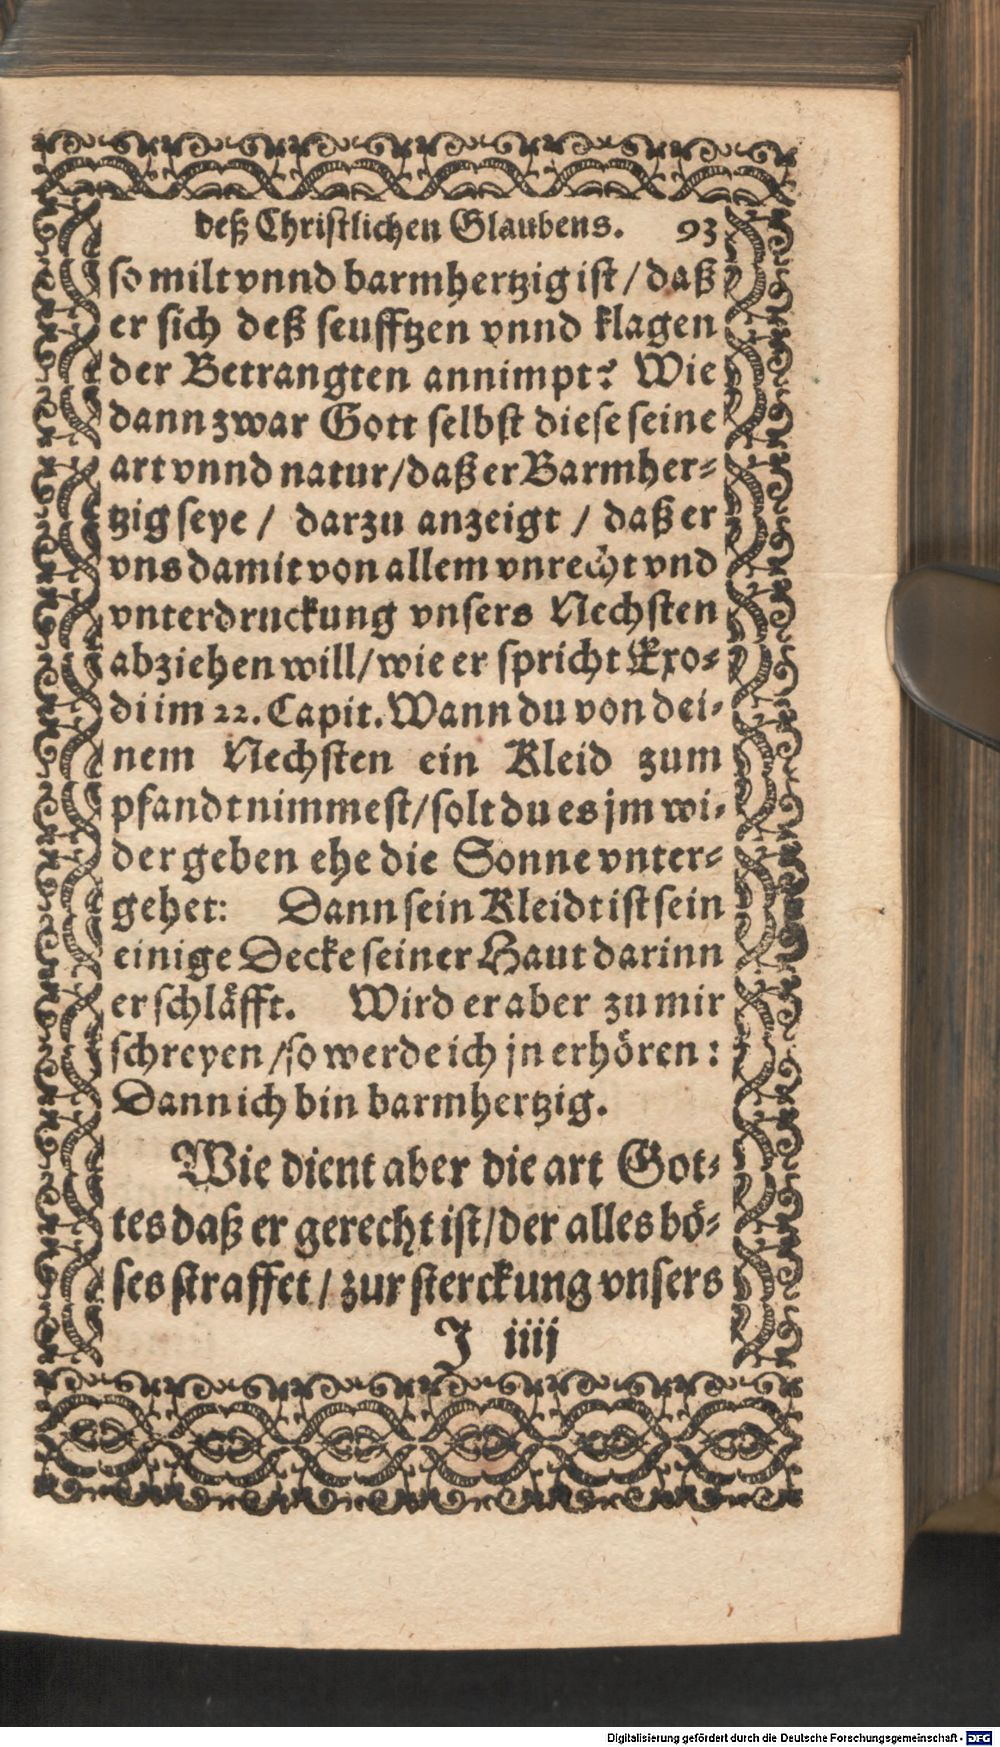 deß Christlichen Glaubens. 93
so milt vnnd barmhertzig ist / daß
er sich deß seufftzen vnnd klagen
der Betrangten annimpt? Wie
dann zwar Gott selbst diese seine
art vnnd natur / daß er Barmher-
tzig seye / darzu anzeigt / daß er
vns damit von allem vnrecht vnd
vnterdruckung vnsers Nechsten
abziehen will / wie er spricht Exo-
di im 22. Capit. Wann du von dei-
nem Nechsten ein Kleid zum
pfandt nimmest / solt du es jm wi-
der geben ehe die Sonne vnter-
gehet: Dann sein Kleidt ist sein
einige Decke seiner Haut darinn
er schläfft. Wird er aber zu mir
schreyen / so werde ich jn erhören:
Dann ich bin barmhertzig.
Wie dient aber die art Got-
tes daß er gerecht ist / der alles bö-
ses straffet / zur sterckung vnsers
J iiij
Digitalisierung gefördert durch die Deutsche Forschungsgemeinschaft - DFG